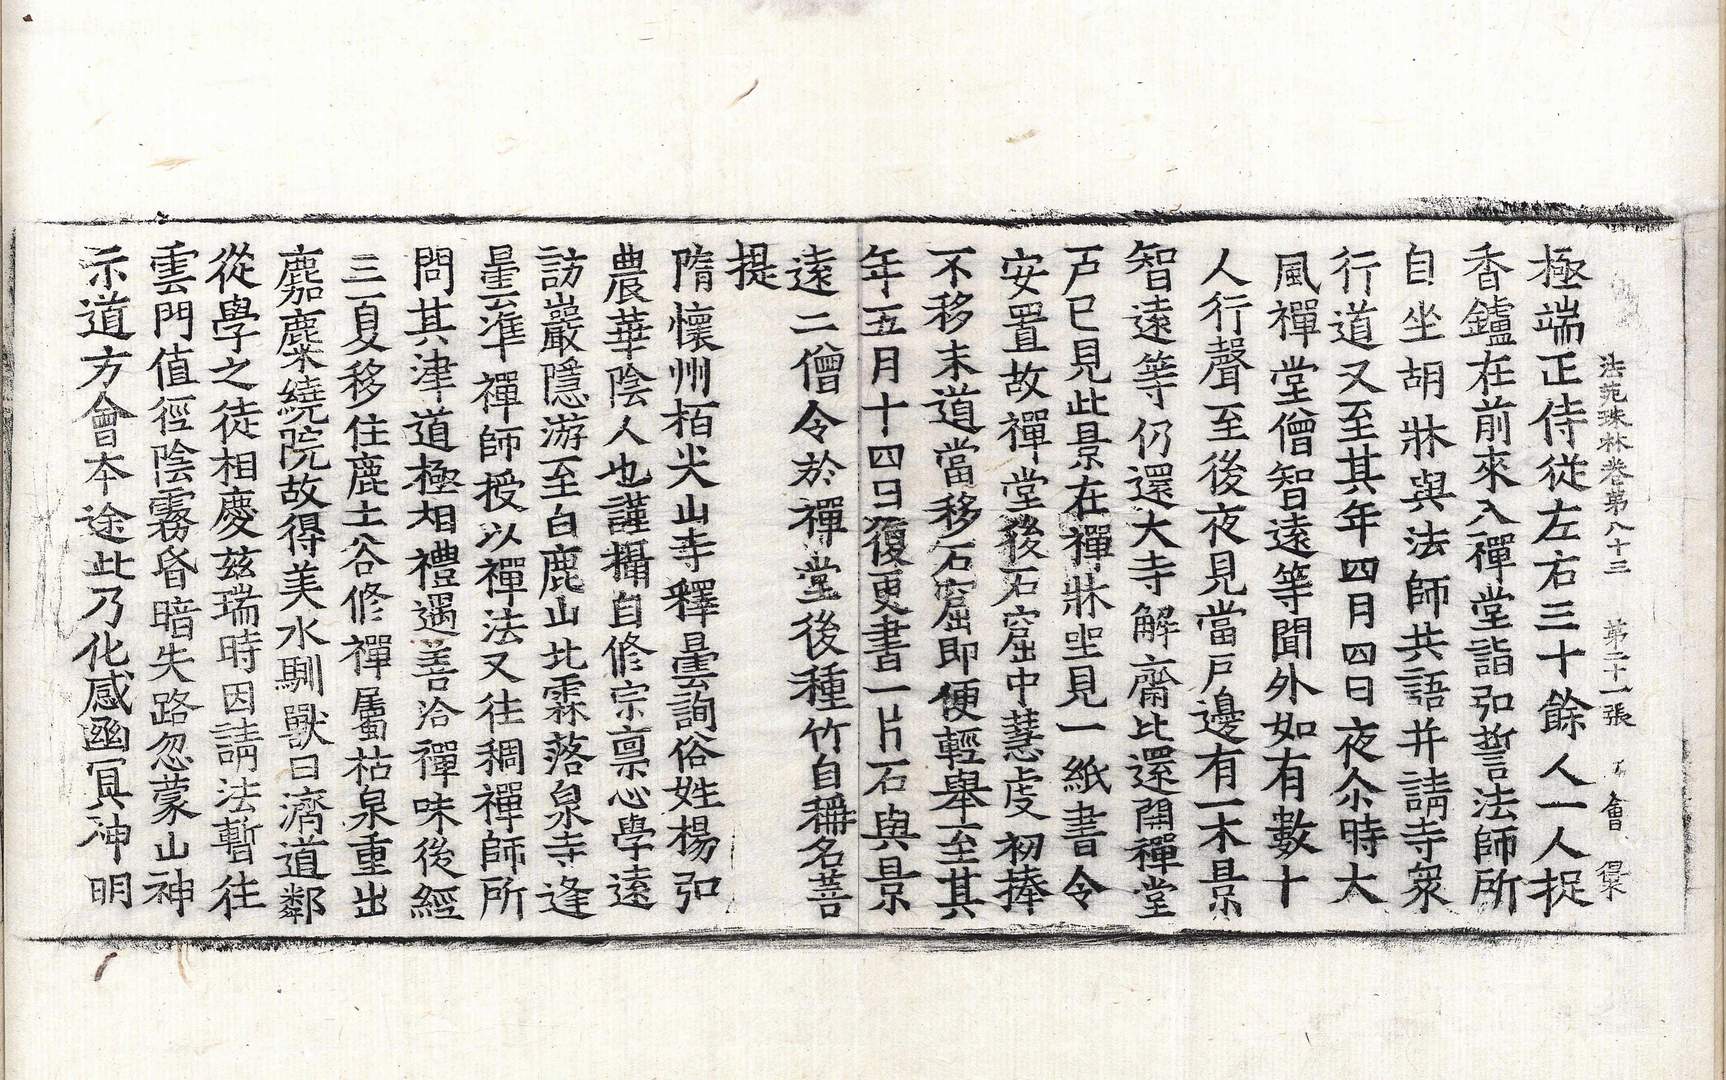 法苑珠林卷第八十三 第二十一張 會
極端正侍從左右三十餘人一人捉
香鑪在前來入禪堂詣弘誓法師所
自坐胡牀與法師共語并請寺衆
行道又至其年四月四日夜尒時大
風禪堂僧智遠等聞外如有數十
人行聲至後夜見當戸邊有一木景
智遠等仍還大寺解齋比還開禪堂
戸已見此景在禪牀坐見一紙書令
安置故禪堂後石窟中慧虔初捧
不移末道當移石窟即便輕舉至其
年五月十四日復更書一片石與景
遠二僧令於禪堂後種竹自稱名菩
提
隋懷州栢尖山寺釋曇詢俗姓楊弘
農華陰人也謹攝自修宗稟心學遠
訪巖隱游至白鹿山北霖落泉寺逢
曇准禪師授以禪法又往稠禪師所
問其津道極相禮遇善洽禪味後經
三夏移住鹿土谷修禪屬枯泉重出
麚麋繞院故得美水馴獸日濟道鄰
從學之徒相慶兹瑞時因請法暫往
雲門値徑陰霧昏暗失路忽蒙山神
示道方會本途此乃化感幽冥神明